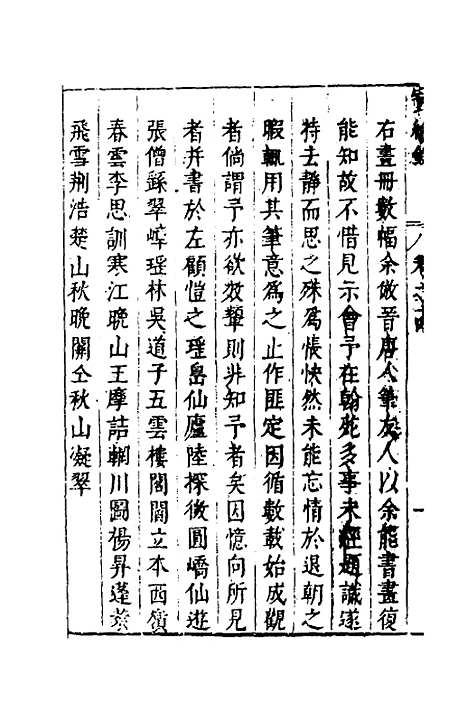 右畫冊數幅余倣晉唐人筆友人以余能書畫復
能知故不惜見示會予在翰苑多事未經題識遂
持去靜而思之殊為悵怏然未能忘情於退朝之
暇輒用其筆意為之止作匪定因循數載始成觀
者倘謂予亦欲效顰則非知予者矣因憶向所見
者并書於左顧愷之瑶島仙廬陸探微圓嶠仙遊
張僧繇翠嶂瑶林吳道子五雲樓閣閻立本西嶺
春雲李思訓寒江晚山王摩詰輞川圖楊昇蓬萊
飛雪荆浩楚山秋晚關仝秋山凝翠